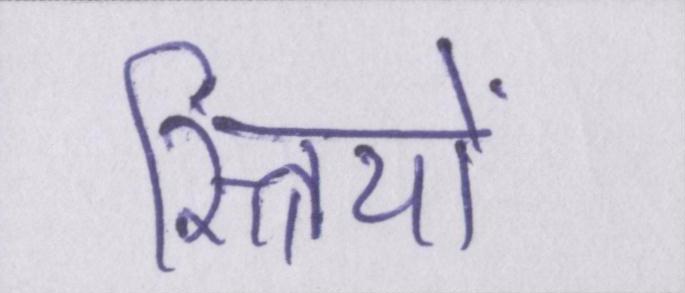 स्त्रियों